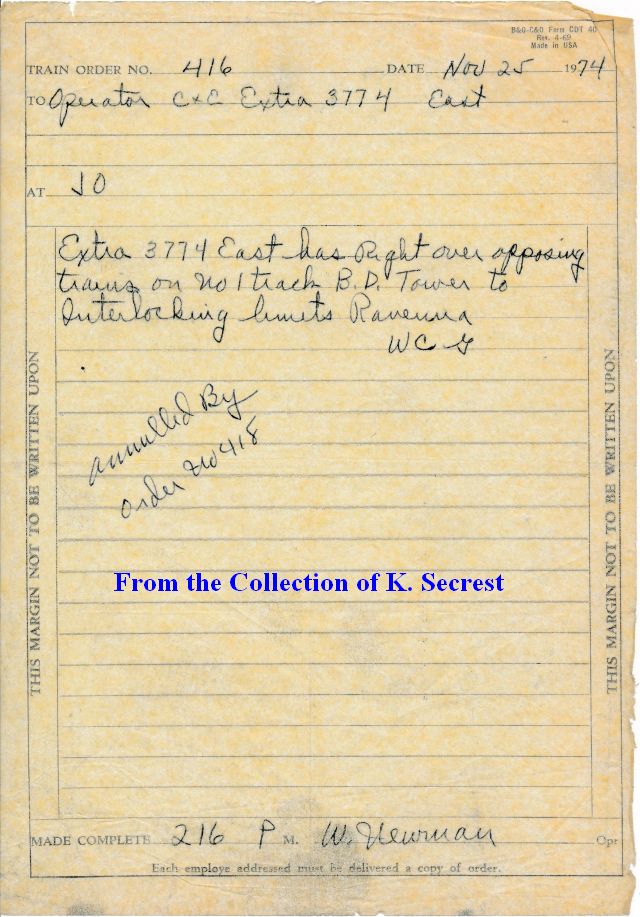 B&O-C&O Form CDT 40
Rev. 4-69
Made in USA
TRAIN ORDER NO. 416 DATE Nov 25 1974
TO Operator C+E Extra 3774 East
AT JO
Extra 3774 East has Right over opposing
trains on No 1 track B.D. Tower to
Interlocking limits Ravenna
WCG
annulled By
order No 418
From the Collection of K. Secrest
THIS MARGIN NOT TO BE WRITTEN UPON
THIS MARGIN NOT TO BE WRITTEN UPON
MADE COMPLETE 216 P M. W. Newman Opr
Each employe addressed must be delivered a copy of order.